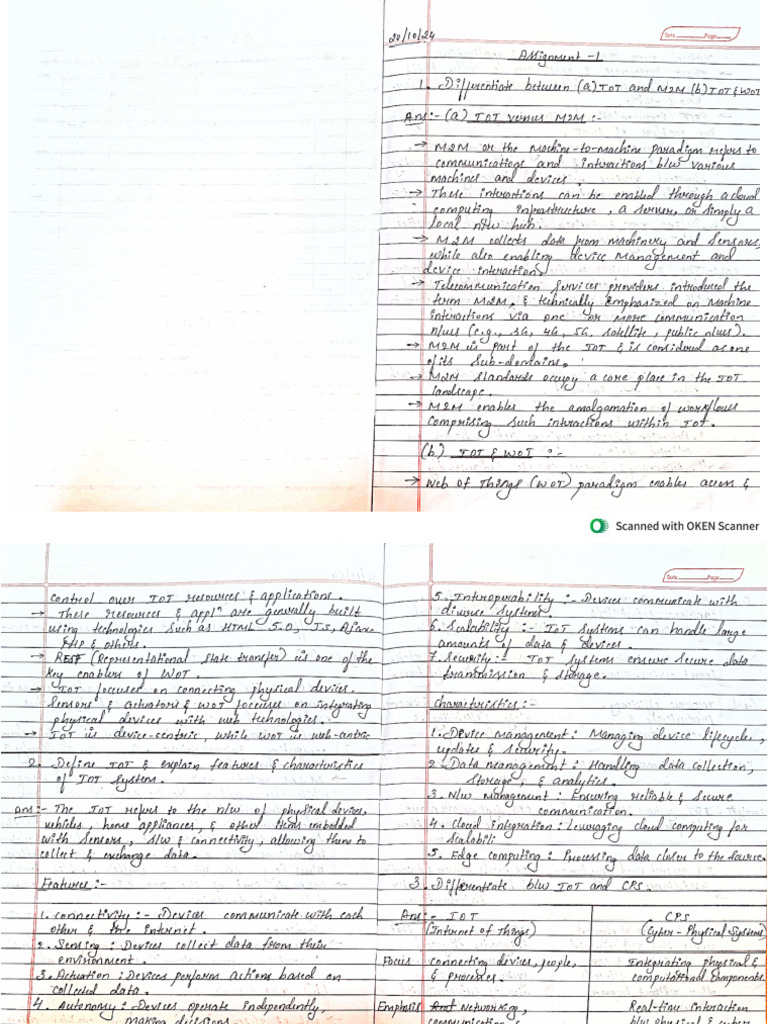 20/10/24
Date ______ Page ______
Assignment -1
1. Differentiate between (a) IOT and M2M (b) IOT & WOT
Ans:- (a) IOT versus M2M :-
→ M2M or the machine-to-machine paradigm refers to
communications and interactions b/w various
machines and devices.
→ These interactions can be enabled through a cloud
computing infrastructure, a server, or simply a
local n/w hub.
→ M2M collects data from machinery and sensors,
while also enabling device management and
device interaction.
→ Telecommunication services providers introduced the
term M2M, & technically emphasized on machine
interactions via one or more communication
n/ws (e.g., 3G, 4G, 5G, satellite, public n/ws).
→ M2M is part of the IOT & is considered as one
of its sub-domains.
→ M2M standards occupy a core place in the IOT
landscape.
→ M2M enables the amalgamation of workflows
comprising such interactions within IOT.
(b) IOT & WOT :-
→ Web of Things (WOT) paradigm enables access &
Scanned with OKEN Scanner
control over IOT resources & applications.
→ These resources & appln are generally built
using technologies such as HTML 5.0, JS, Ajax,
PHP & others.
→ REST (Representational state transfer) is one of the
key enablers of WOT.
→ IOT focuses on connecting physical devices,
sensors & actuators & WOT focuses on integrating
physical devices with web technologies.
→ IOT is device-centric, while WOT is web-centric
2. Define IOT & explain features & characteristics
of IOT system.
Ans:- The IOT refers to the n/w of physical devices,
vehicles, home appliances, & other items embedded
with sensors, s/w & connectivity, allowing them to
collect & exchange data.
Features :-
1. Connectivity :- Devices communicate with each
other & the internet.
2. Sensing : Devices collect data from their
environment.
3. Actuation : Devices perform actions based on
collected data.
4. Autonomy : Devices operate independently,
making decisions
Date ______ Page ______
5. Interoperability :- Devices communicate with
diverse systems.
6. Scalability :- IOT systems can handle large
amounts of data & devices.
7. Security :- IOT systems ensure secure data
transmission & storage.
Characteristics :-
1. Device management : Managing device lifecycle,
updates & security.
2. Data management : Handling data collection,
storage, & analytics.
3. N/w management : Ensuring reliable & secure
communication.
4. Cloud integration : Leveraging cloud computing for
scalabili
5. Edge computing : Processing data closer to the source.
3. Differentiate b/w IOT and CPS.
Ans:- IOT CPS
(Internet of Things) (Cyber-Physical Systems)
Focus connecting devices, people, Integrating physical &
& processes. computational components.
Emphasis Networking, Real-time interaction
b/w physical & cyber